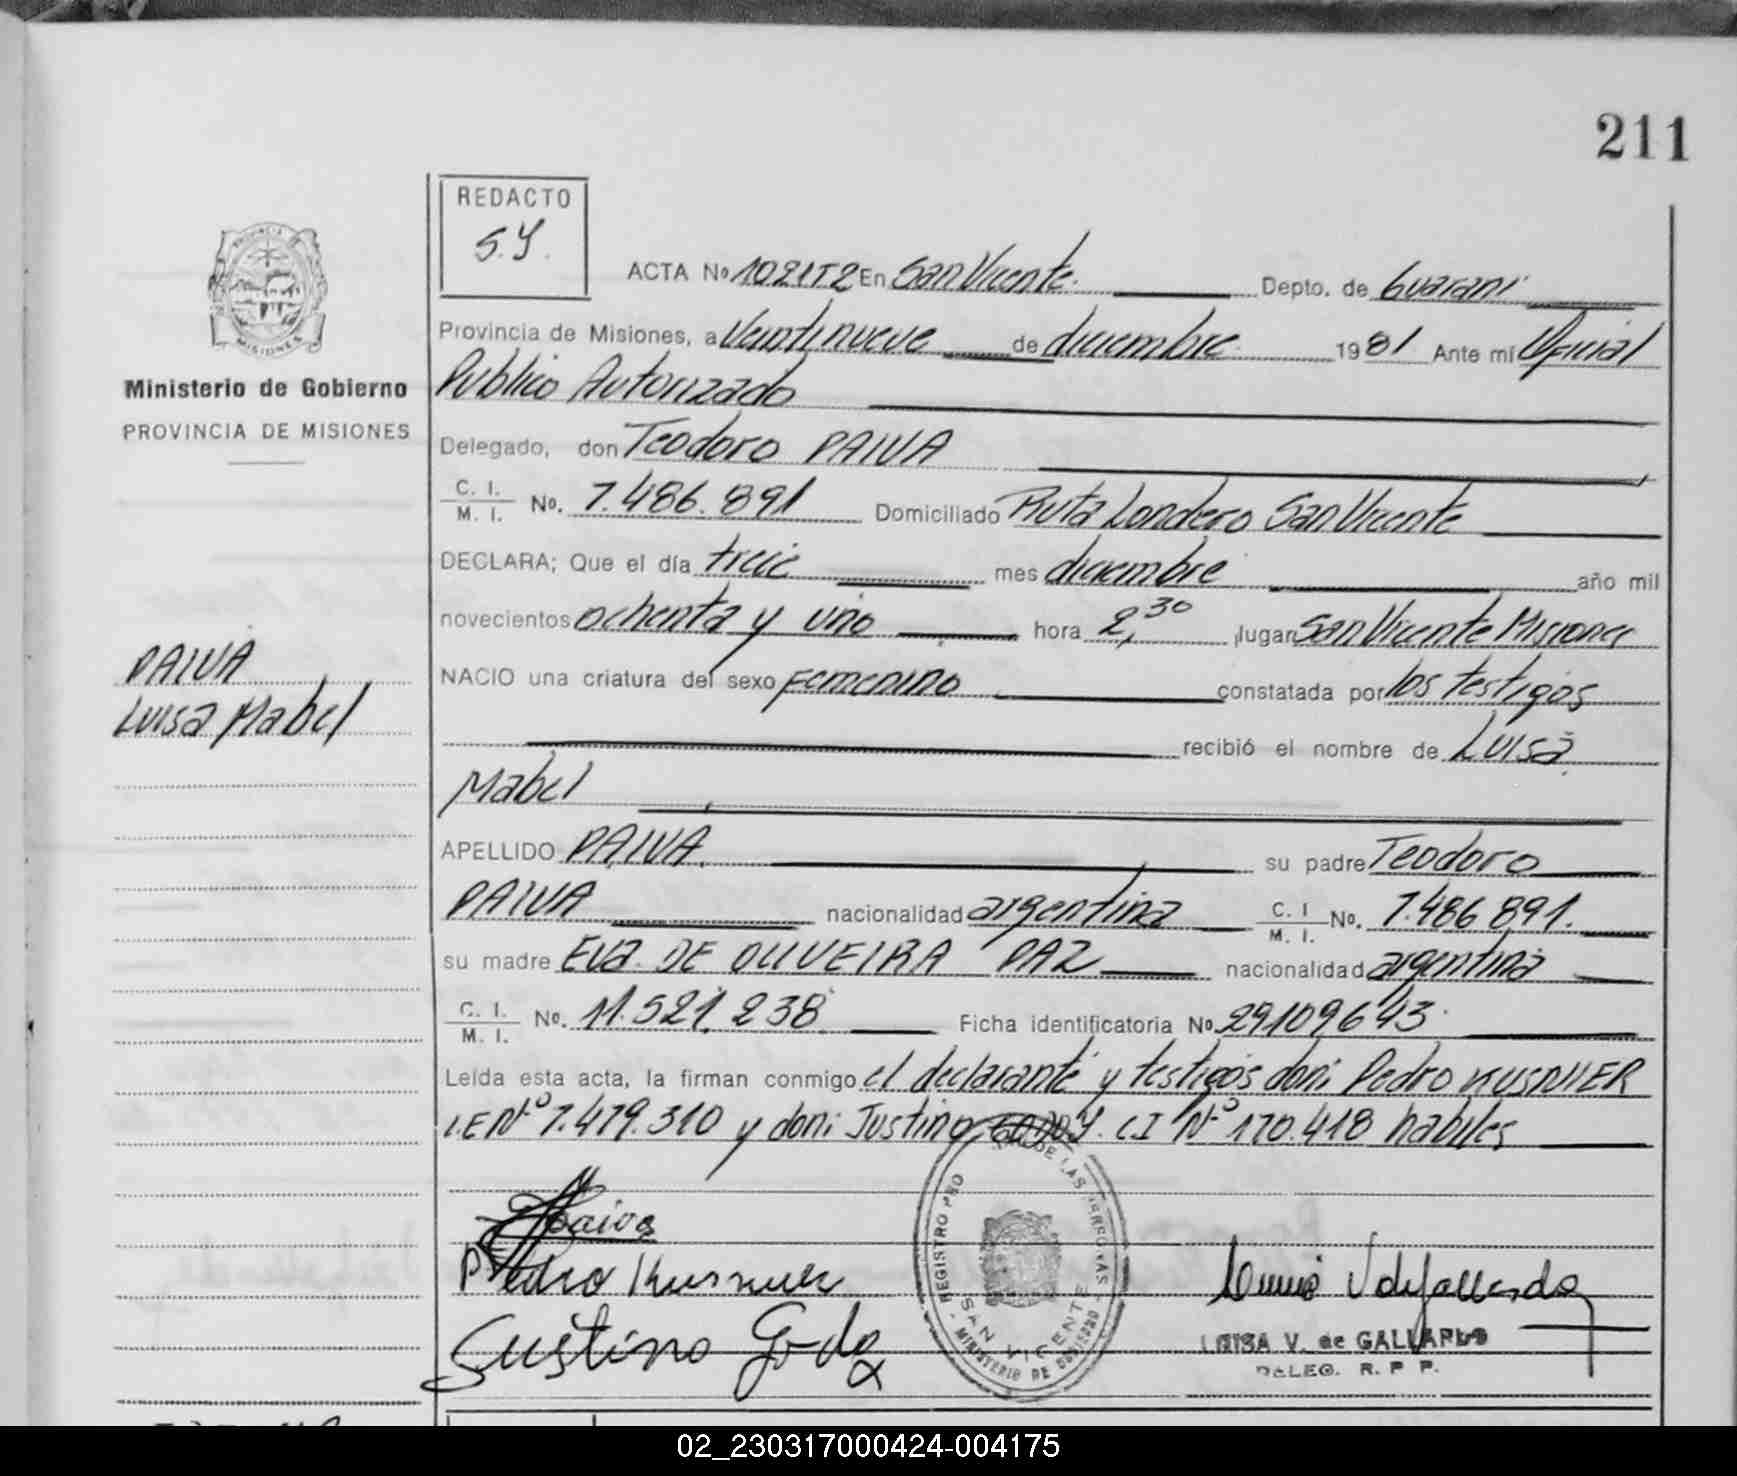 211
REDACTO
S.Y.
PROVINCIA DE
MISIONES
ACTA No 1021T2 En San Vicente. Depto. de Guaraní
Provincia de Misiones, a Veintinueve de diciembre 1981 Ante mi Oficial
Ministerio de Gobierno
Publico Autorizado
PROVINCIA DE MISIONES
Delegado, don Teodoro PAIVA
C. I. M. I. No. 7.486.891 Domiciliado Ruta Londero San Vicente
DECLARA; Que el día treic mes diciembre año mil
novecientos ochenta y uno hora 2,30 lugar San Vicente Misiones
PAIVA
Luisa Mabel
NACIO una criatura del sexo Femenino constatada por los testigos
recibió el nombre de Luisa
Mabel
APELLIDO PAIVA su padre Teodoro
PAIVA nacionalidad argentina C. I M. I. No. 7.486 891.
su madre Eva DE OLIVEIRA PAZ nacionalidad argentina
C. I. M. I. No. 11.521.238 Ficha identificatoria No 29109643.
Leída esta acta, la firman conmigo el declarante y testigos don: Pedro KUSNIER
LE Nº 7.479.310 y don: Justino GODOY. CI Nº 170.418 habiles
Paiva
Pedro Kusnier
Justino Godo
REGISTRO PRO DE LAS PERSONAS
SAN VICENTE
MINISTERIO DE GOBIERNO
LUISA V. de GALLARDO
DELEG. R. P P.
02_230317000424-004175